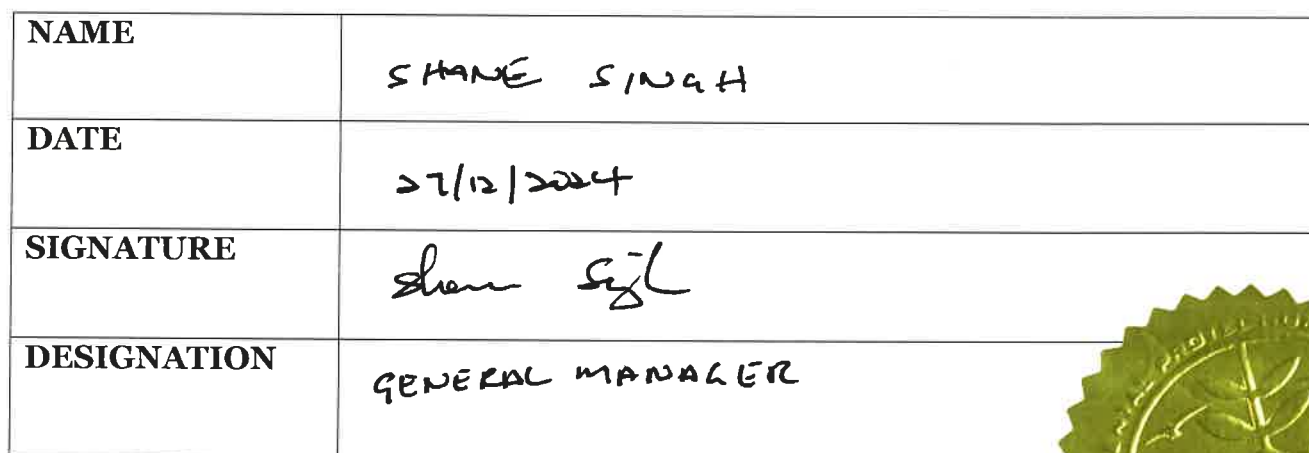 NAME
SHANE SINGH
DATE
27/12/2024
SIGNATURE
Shane Singh
DESIGNATION
GENERAL MANAGER